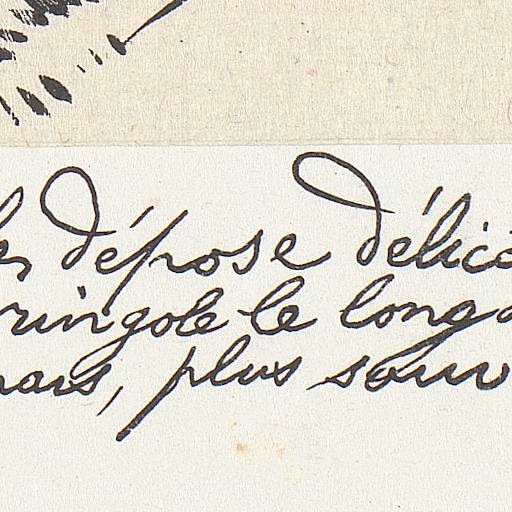 les dépose délica
ringole le long d
mais, plus souv